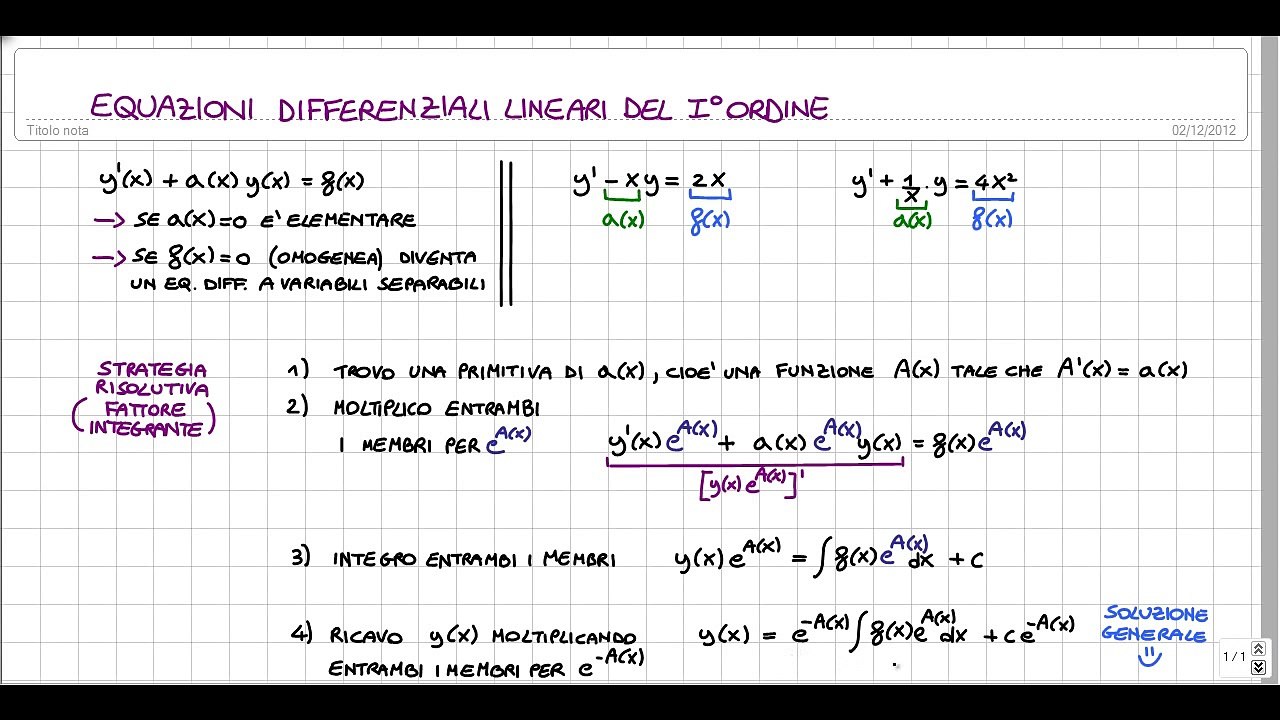 EQUAZIONI DIFFERENZIALI LINEARI DEL I° ORDINE
Titolo nota
02/12/2012
y'(x) + a(x) y(x) = f(x)
→ SE a(x)=0 E' ELEMENTARE
→ SE f(x)=0 (OMOGENEA) DIVENTA
UN EQ. DIFF. A VARIABILI SEPARABILI
y' - x y = 2x
a(x) f(x)
y' + 1/x · y = 4x²
a(x) f(x)
STRATEGIA
RISOLUTIVA
(FATTORE
INTEGRANTE)
1) TROVO UNA PRIMITIVA DI a(x), CIOE' UNA FUNZIONE A(x) TALE CHE A'(x) = a(x)
2) MOLTIPLICO ENTRAMBI
I MEMBRI PER e^A(x) y'(x) e^A(x) + a(x) e^A(x) y(x) = f(x) e^A(x)
[y(x) e^A(x)]'
3) INTEGRO ENTRAMBI I MEMBRI y(x) e^A(x) = ∫ f(x) e^A(x) dx + c
4) RICAVO y(x) MOLTIPLICANDO y(x) = e^-A(x) ∫ f(x) e^A(x) dx + c e^-A(x)
ENTRAMBI I MEMBRI PER e^-A(x)
SOLUZIONE
GENERALE
1 / 1